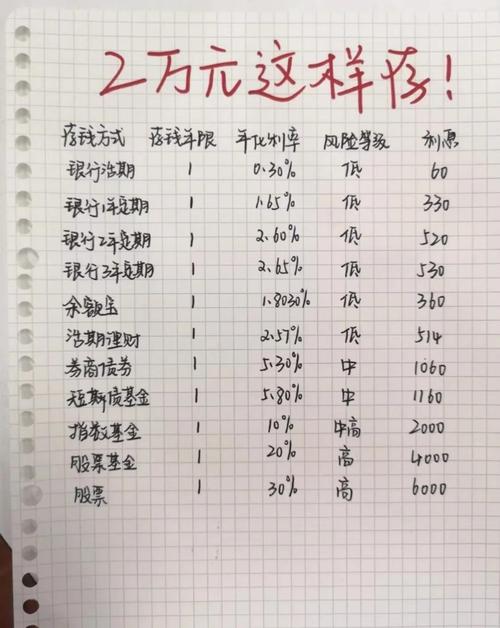 2万元这样存!
存钱方式 存钱年限 年化利率 风险等级 利息
银行活期 1 0.30% 低 60
银行1年定期 1 1.65% 低 330
银行2年定期 1 2.60% 低 520
银行3年定期 1 2.65% 低 530
余额宝 1 1.8030% 低 360
活期理财 1 2.57% 低 514
券商债券 1 5.30% 中 1060
短期债基金 1 5.80% 中 1160
指数基金 1 10% 中高 2000
股票基金 1 20% 高 4000
股票 1 30% 高 6000